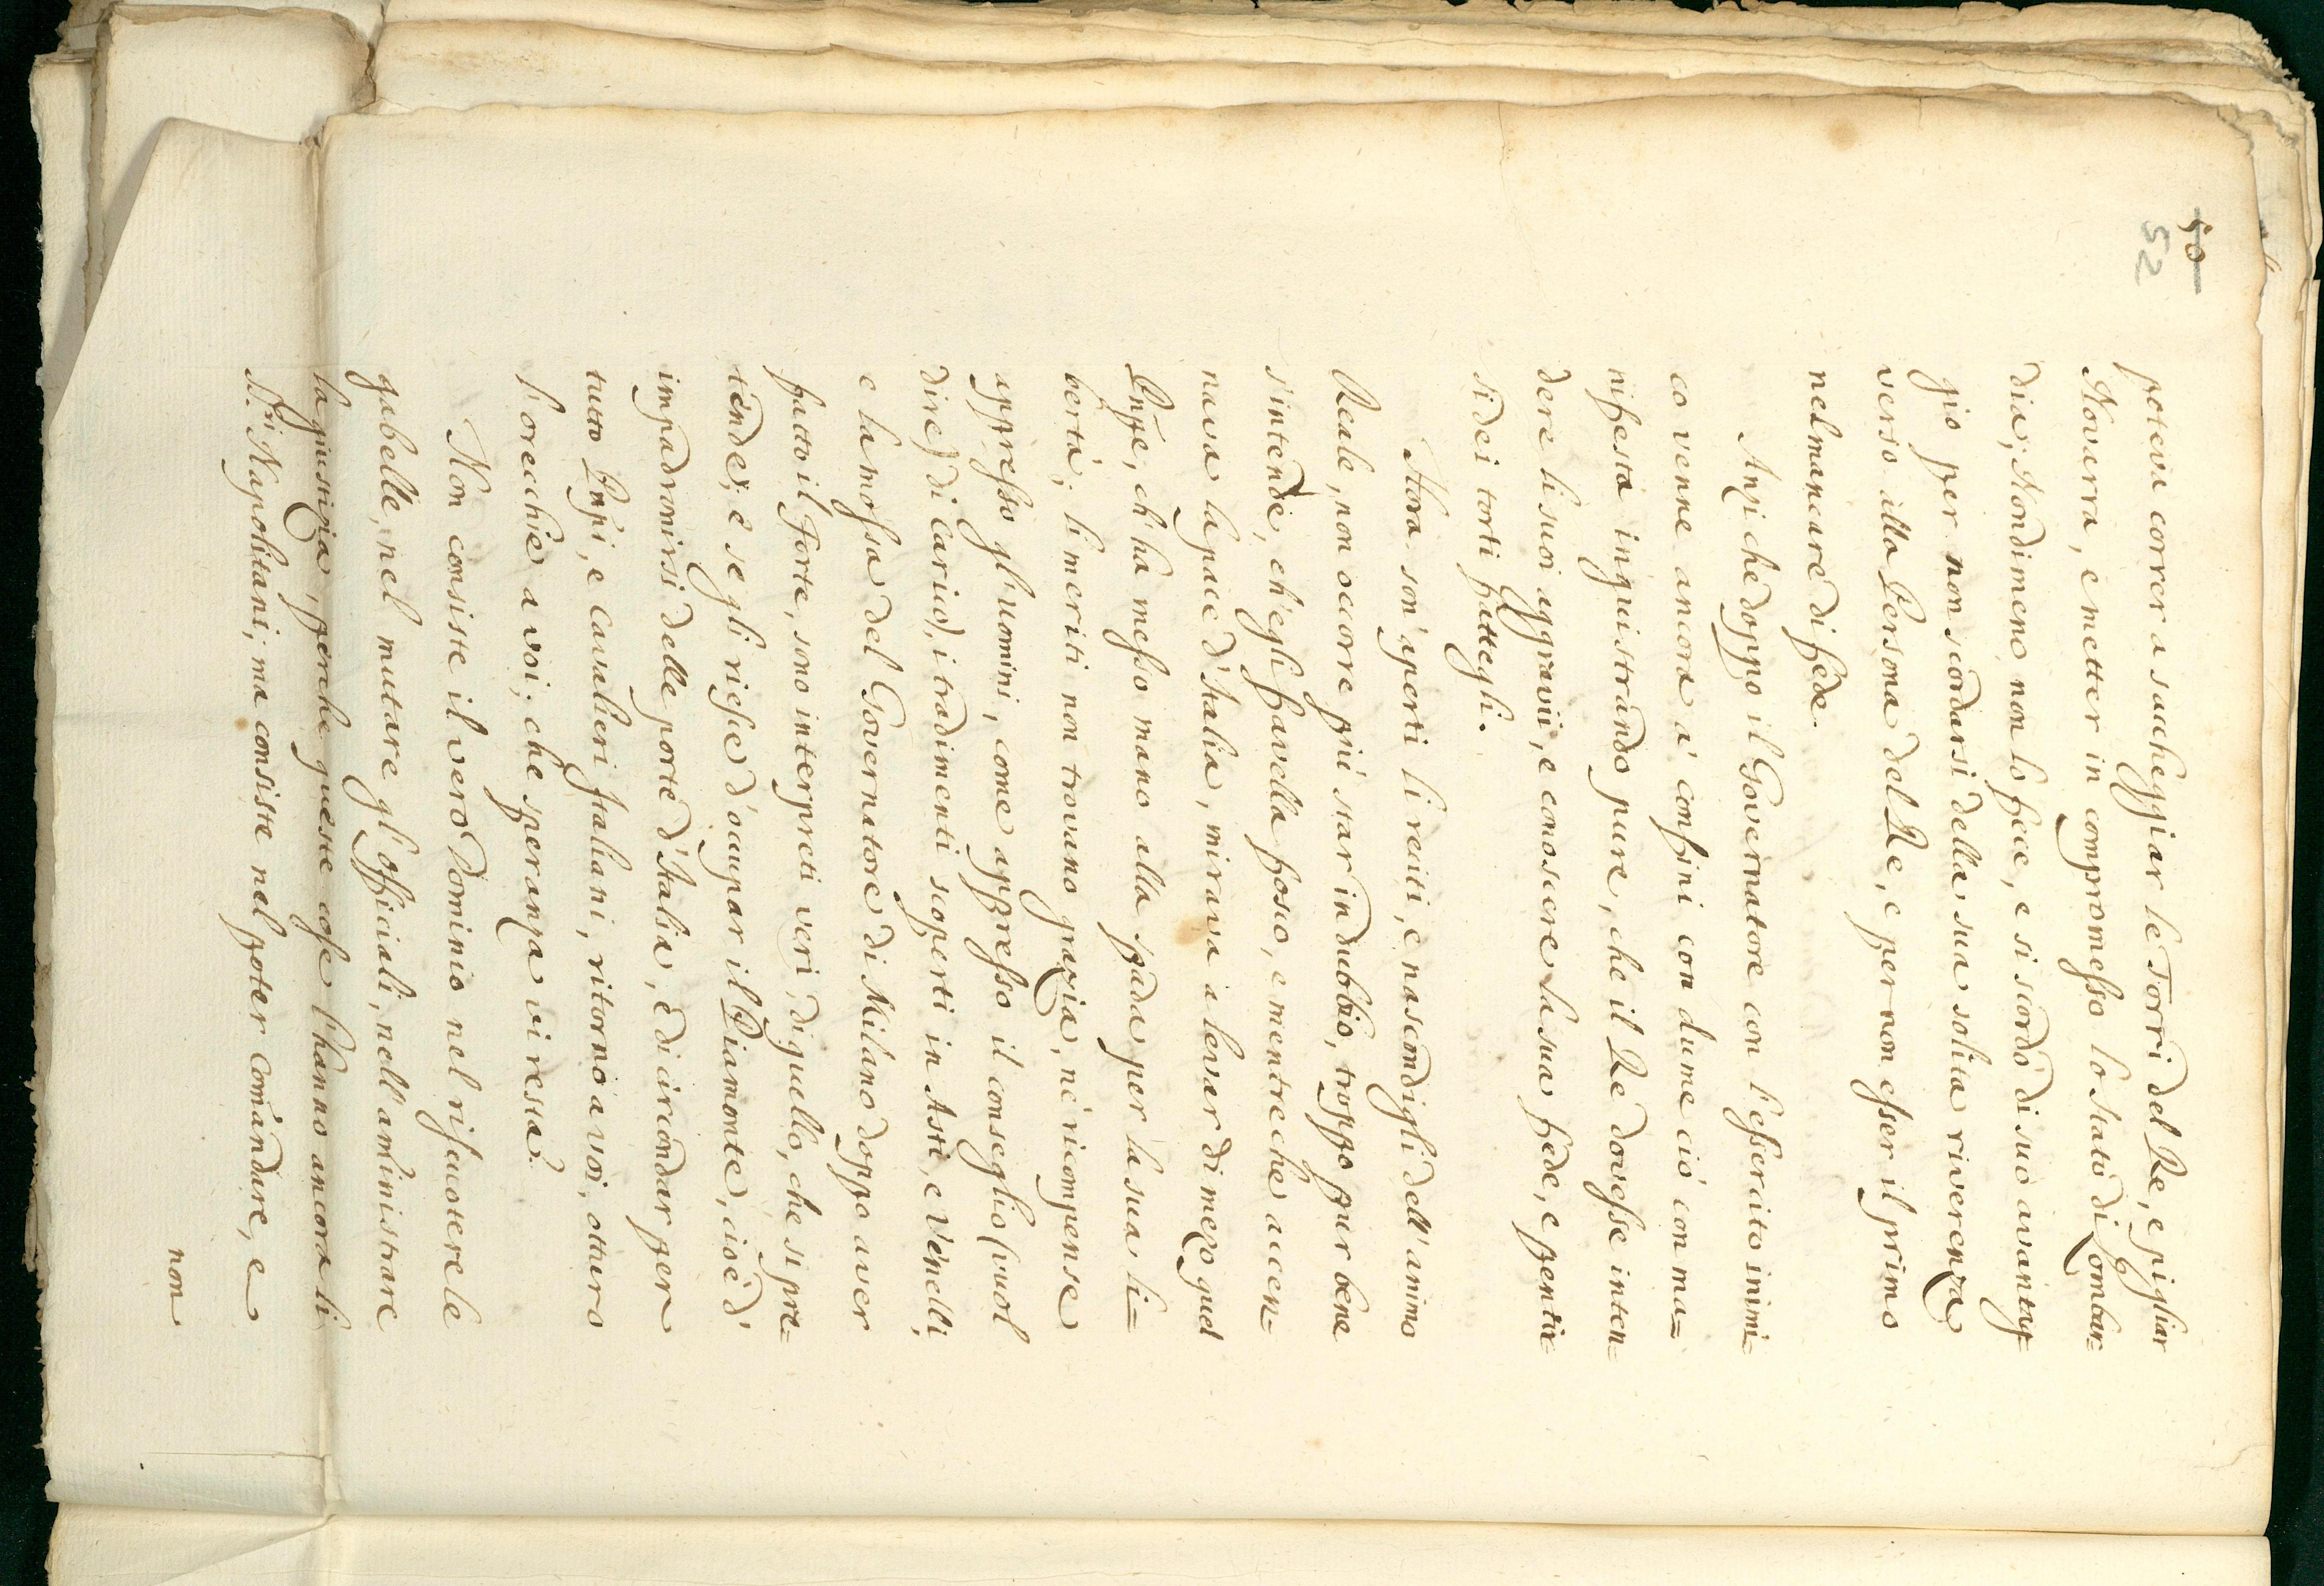 50
52
poteva correr a sacheggiar le Torri del Re, e pigliar
Novarra, e metter in compromesso lo stato di Lombar=
dia; Nondimeno non lo fece, e si scordò di suo avantag=
gio per non scordarsi della sua solita riverenza
verso alla Persona del Re, e per non esser il primo
nel mancare di fede.
Anzi che doppo il Governatore con l'essercito inimi=
co venne ancora a' confini con dume ciò con ma=
nifesta inquistrando pure, che il Rè dovesse inten=
dere li suoi aggravii, e conoscere la sua fede, e pentir=
si dei torti fattegli.
Hora son' aperti li reciti, e nascondigli dell' animo
Reale, non occorre più star in dubbio, troppo pur bene
s'intende, ch'egli favella fosco, e mentreche accen=
nava la pace d'Italia, mirava a levar di mezo quel
Pnṗe, ch'ha messo mano alla spada per la sua li=
bertà; li meriti non trovano grazia, nè ricompense
appresso gl'uomini, come appresso il conseglio (vuol
dire) di Carico), i tradimenti scoperti in Asti, e Venelli,
e la mossa del Governatore di Milano doppo aver
fatto il Forte, sono interpreti veri, di quello, che si pre=
tende; e se gli riesce d'occupar il Piamonte, cioè d'
impadronirsi delle porte d'Italia, e di circondar per
tutto Pnṗi, e Cavalieri Italiani, ritornò a voi, otturo
l'orecchie a voi; che speranza vi resta?
Non consiste il vero Dominio nel riscuotere le
gabelle, nel mutare gl'officiali, nell'aministrare
la giustizia, perche queste cose l'hanno ancora li
ss.ri Napolitani; ma consiste nel poter comandare, e
non